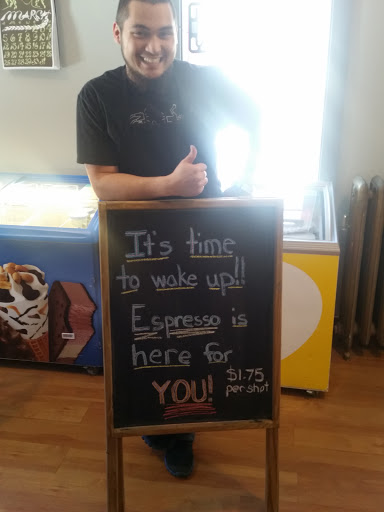 MARCH
It's time
to wake up!!
Espresso is
here for
YOU!
$1.75
per shot